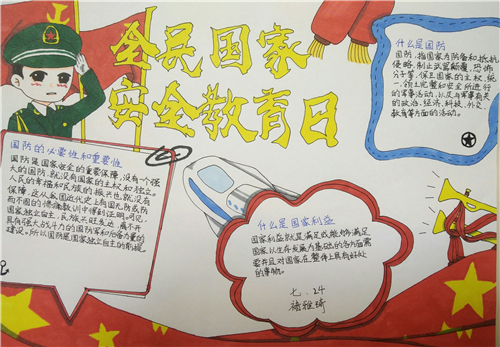 全民国家
安全教育日
什么是国防
国防,指国家为防备和抵抗
侵略,制止武装颠覆,恐怖
分子等,保卫国家的主权,统
一,领土完整和安全所进行
的军事活动,以及与军事有关
的政治,经济,科技,外交
教育等方面的活动。
国防的必要性和重要性
国防是国家安全的重要保障,没有一个强
大的国防,就没有国家的主权和独立。
人民的幸福和民族的振兴也就没有
保障,这从我国近代史上有国无防或防
而不固的惨痛教训中得到证明。可见,
国家独立自主,民族兴旺发达,离不开
具有强大战斗力的国防军和后备力量的
建设。所以国防是国家独立自主的前提
什么是国家利益
国家利益就是满足或能够满足
国家以生存发展为基础的各方面需
要并且对国家在整体上具有好处
的事物。
七.24
雅琦